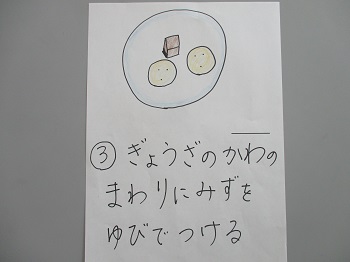 ③ ぎょうざのかわの
まわりにみずを
ゆびでつける